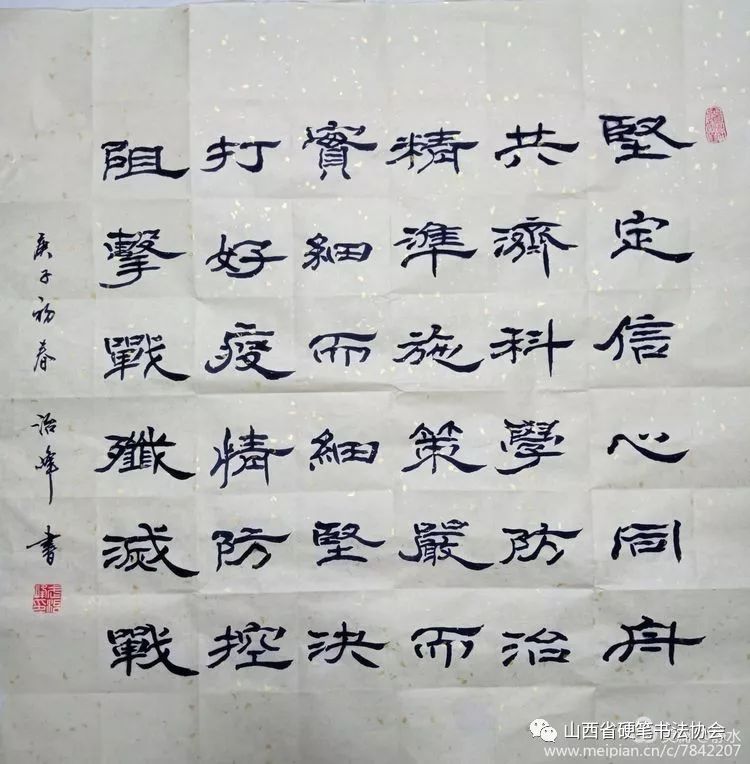 堅定信心同舟
共濟科學防治
精準施策嚴而
實細而細堅決
打好疫情防控
阻擊戰殲滅戰
庚子初春 治峰 書
山西省硬笔书法协会
www.meipian.cn/c/7842207